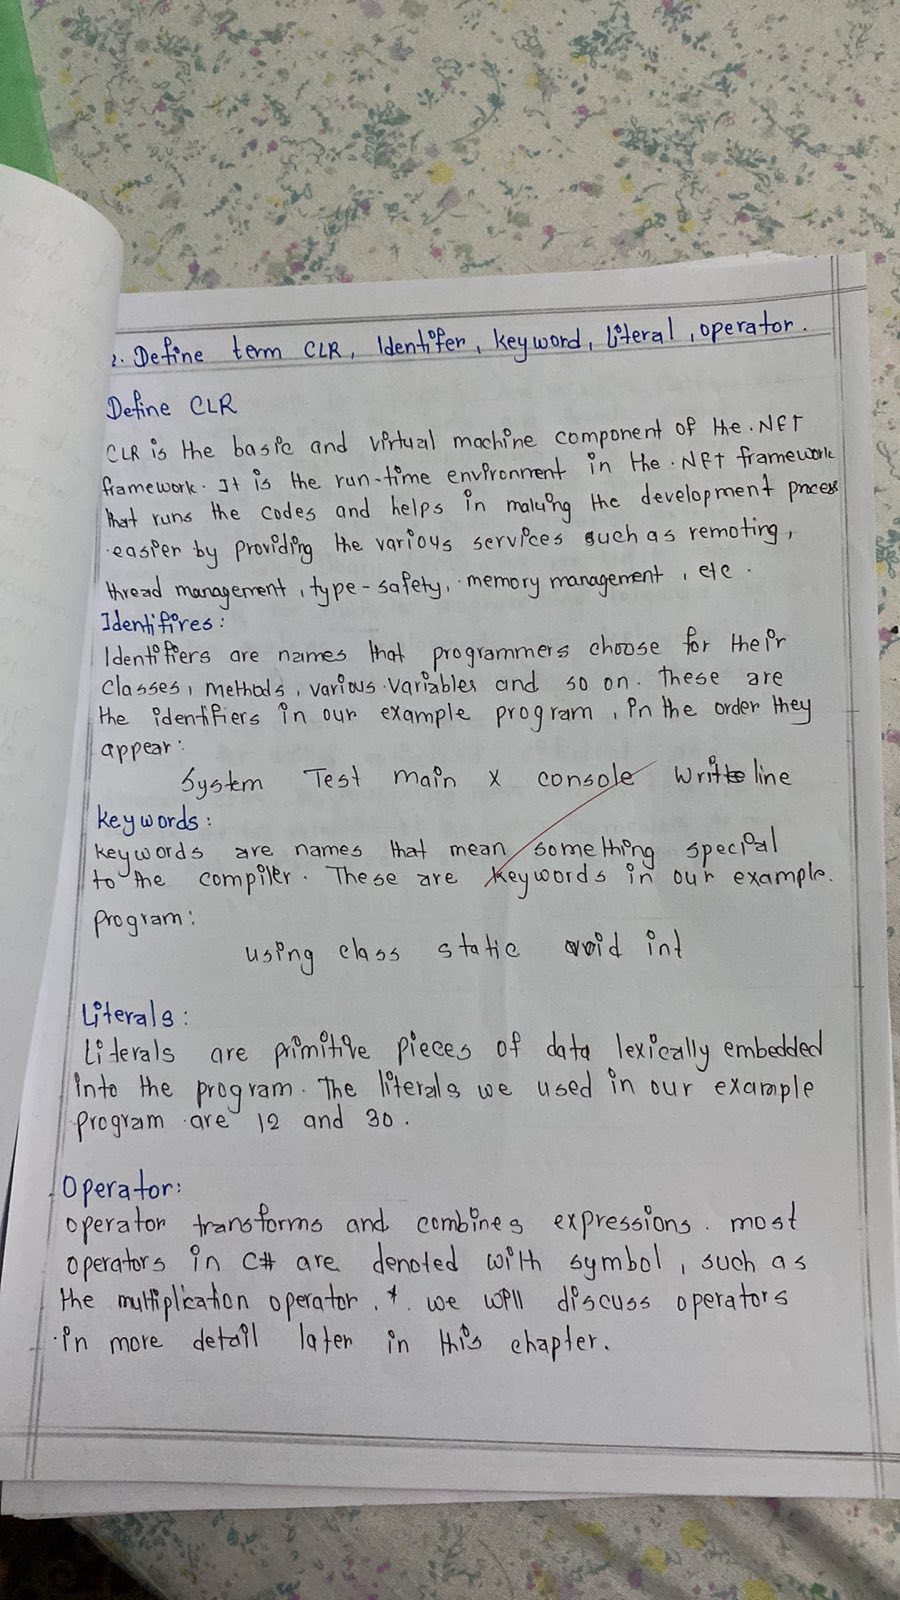 2. Define term CLR, Identifer, keyword, literal, operator.
Define CLR
CLR is the basic and virtual machine component of the .NET
framework. It is the run-time environment in the .NET framework
that runs the codes and helps in making the development process
easier by providing the various services such as remoting,
thread management, type-safety, memory management, etc.
Identifires:
Identifiers are names that programmers choose for their
classes, methods, various variables and so on. These are
the identifiers in our example program, in the order they
appear:
System Test main x console Write line
keywords:
keywords are names that mean something special
to the compiler. These are keywords in our example.
program:
using class static void int
Literals:
Literals are primitive pieces of data lexically embedded
into the program. The literals we used in our example
program are 12 and 30.
Operator:
operator transforms and combines expressions. most
operators in C# are denoted with symbol, such as
the multiplication operator, *. we will discuss operators
in more detail later in this chapter.